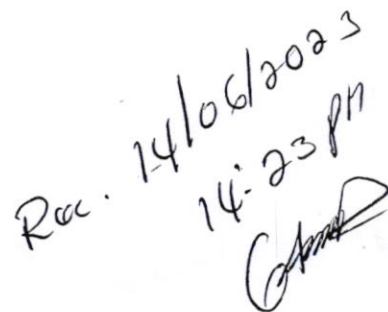 Rec. 14/06/2023
14:23 PM